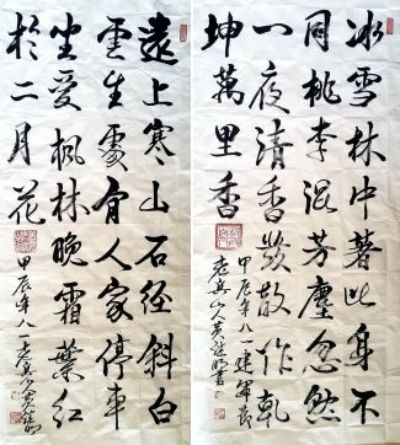 冰雪林中著此身不
同桃李混芳塵忽然
一夜清香發散作乾
坤萬里香
甲辰年八一建軍節
老兵山人黃明書
遠上寒山石径斜白
雲生處有人家停車
坐愛楓林晚霜葉紅
於二月花
甲辰年八一老兵黃明